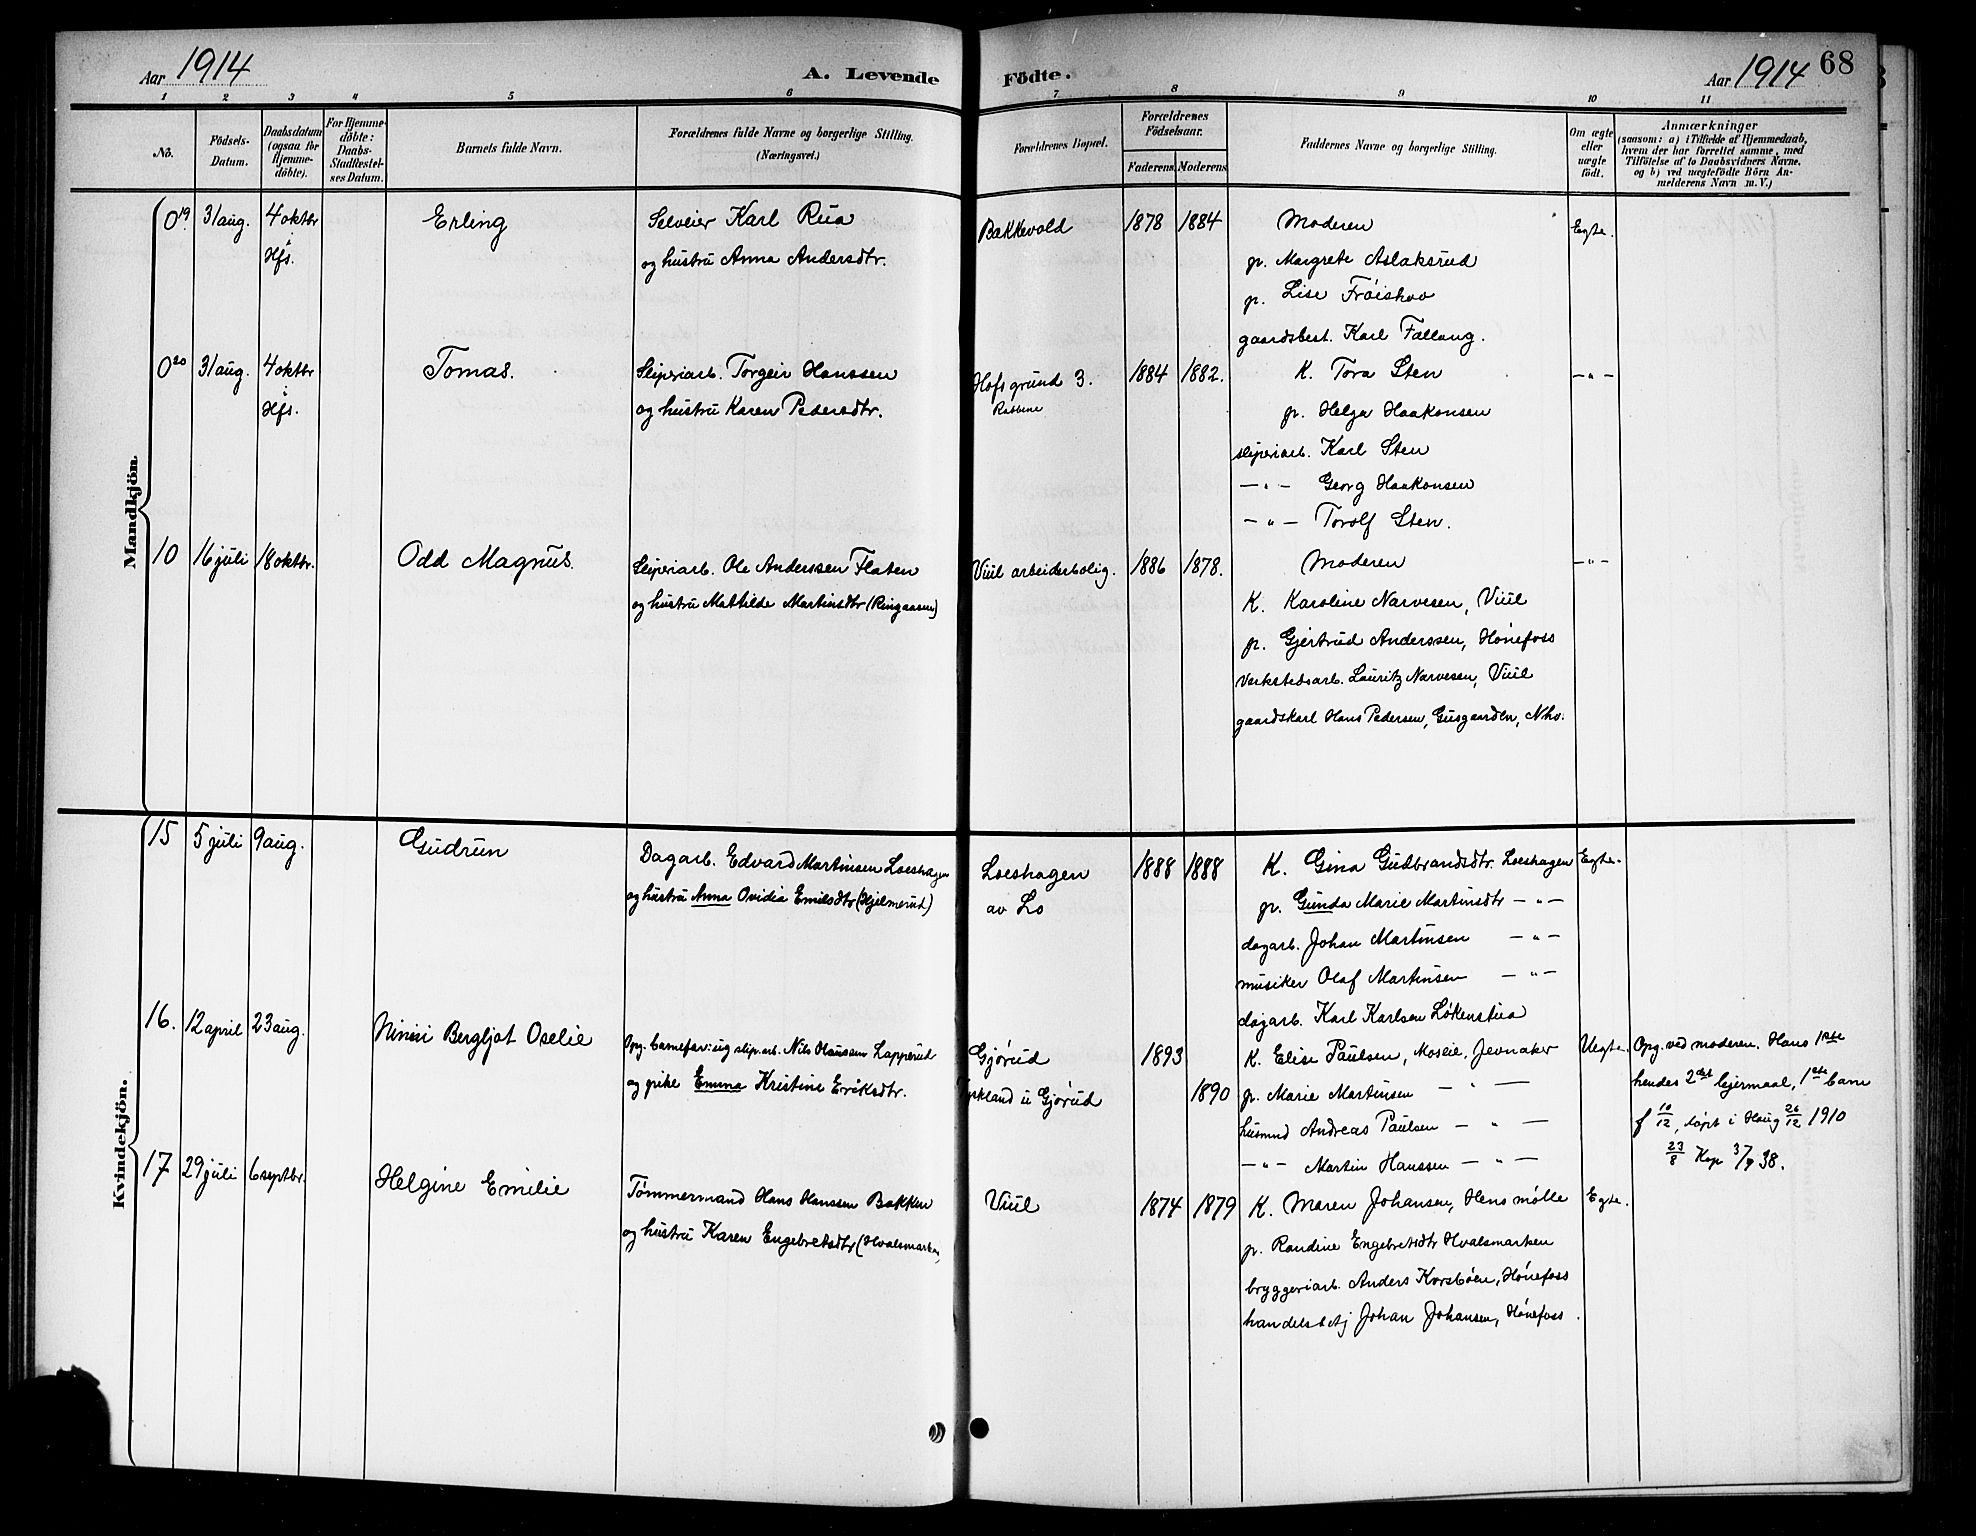 Aar 1914
A. Levende Födte.
Aar 1914 68
1 2 3 4 5 6 7 8 9 10 11
Nò.
Födsels-Datum.
Daabsdatum (ogsaa for Hjemme-döbte).
For Hjemme-döbte: Daabs-Stadfæstel-ses Datum.
Barnets fulde Navn.
Forældrenes fulde Navne og borgerlige Stilling. (Næringsvei.)
Forældrenes Bopæl.
Forældrenes Födselsaar.
Faderens. Moderens.
Faddernes Navne og borgerlige Stilling.
Om ægte eller uægte født.
Anmærkninger
(saasom: a) i Tilfælde af Hjemmedaab,
hvem der har forrettet samme, med
Tilföielse af to Daabsvidners Navne,
og b) ved uægtefødte Börn An-
melderens Navn m. V.)
Mandkjön.
0 19. 31 aug. 4 oktbr i Hfs. Erling
Selveier Karl Rua
og hustru Anna Andersdtr.
Bakkevold 1878 1884
Moderen
p. Margrete Aslaksrud
p. Lise Fröishov
gaardsbest. Karl Fallang.
Egte.
0 20 31 aug. 4 oktbr i Hfs. Tomas.
Sliperiarb. Torgeir Hanssen
og hustru Karen Pedersdtr.
Hofsgrund 3.
Rabbene
1884 1882.
K. Tora Sten
p. Helga Haakonsen
sliperiarb. Karl Sten
— " — Georg Haakonsen
— " — Torolf Sten.
— " —
10 16 juli 18 oktbr. Odd Magnus.
Sliperiarb. Ole Anderssen Flaten
og hustru Mathilde Martinsdtr (Ringaasen)
Viul arbeiderbolig. 1886 1878.
Moderen
K. Karoline Narvesen, Viul
p. Gjertrud Anderssen, Hönefoss
Verkstedsarb. Lauritz Narvesen, Viul
gaardskarl Hans Pedersen, Gusgaarden, Nho.
— " —
Kvindekjön.
15 5 juli 9 aug. Gudrun
Dagarb. Edvard Martinsen Loeshagen
og hustru Anna Ovidia Emilsdtr (Hjelmerud)
Loeshagen
av Lo
1888 1888
K. Gina Gudbrandsdtr. Loeshagen
p. Gunda Marie Martinsdtr — " —
dagarb. Johan Martinsen — " —
musiker Olaf Martinsen — " —
dagarb. Karl Karlsen Lökenstua
Egte.
16. 12 april 23 aug. Bergljot Oselie
Opg. barnefar: ug slip.arb. Nils Hanssen Lapperud
og pike Emma Kristine Eriksdtr.
Gjørud
u Gjørud
1893
1890
K. Elise Paulsen, Moseie, Jevnaker
p. Marie Martinsen — " —
husmd Andreas Paulsen — " —
— " — Martin Hanssen — " —
Uegte.
Opg. ved moderen. Hans 1ste
hendes 2det leiermaal, 1ste barn
f 10/12, døpt i Haug 26/12 1910
23/8 Kop 3/9 38.
17 29 juli 6 septbr. Helgine Emilie
Tömmermand Hans Hanssen Bakken
og hustru Karen Engebretsdtr (Hvalsmarken)
Viul 1874 1879
K. Maren Johansen, Hens mölle
p. Randine Engebretsdtr Hvalsmarken
bryggeriarb. Anders Korsböen, Hönefoss
handelsbetj Johan Johansen, Hönefoss.
Egte.